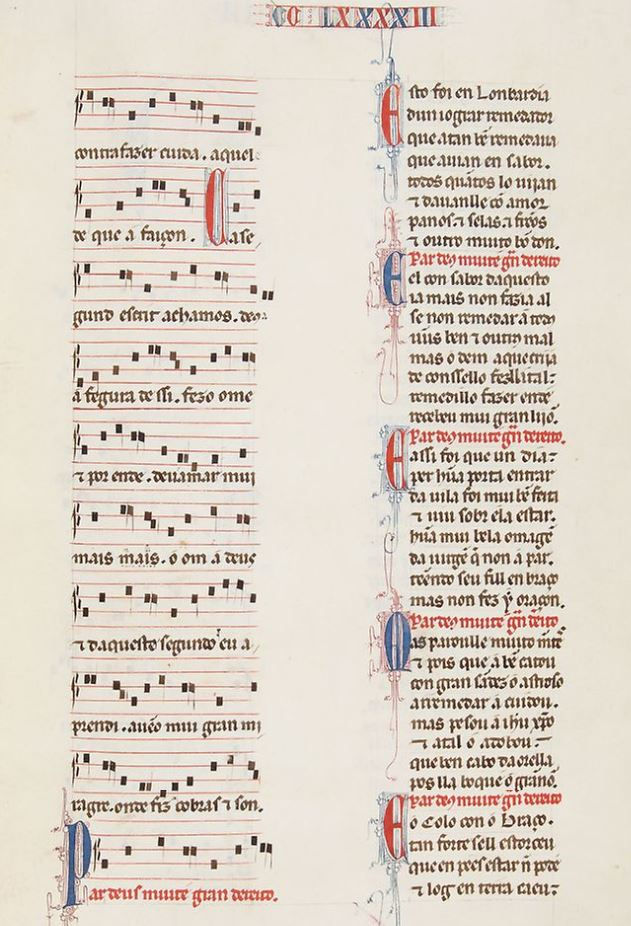 CC LXXXXIII
contrafazer cuida . aquel
de que á faiçon . Ca se
gund escrit achamos . deꝯ
á fegura de ssi . fezo ome
⁊ por ende . deuamar mui
mais mais . o om a deus
⁊ daquesto segundo eu a
prendi . aueo mui gran mi
ragre . onde fiz cobras ⁊ son .
Par deus muit é gran dereito .
Esto foi en Lonbardia
dun iograr remedador
que atan bẽ remedaua
que auian en sabor .
todos quãtos lo uijan
⁊ dauanlle cõ amor
panos ⁊ selas ⁊ frẽos
⁊ outro muito bõ don .
Par deꝯ muit e gn̄ dereito
El con sabor daquesto
ia mais non fazia al
se non remedar á todꝯ
ũus ben ⁊ outrꝯ mal
mas o dem aque cria
de consello fez lli tal :
remedillo fazer ende
recebeu mui gran lijõ .
Par deꝯ muit e gn̄ dereito .
E assi foi que un dia :
per hũa porta entrar
da uila foi mui bẽ feita
⁊ uiu sobr ela estar .
hũa mui bela omagẽ
da uirgẽ q̄ non á par .
tẽendo seu fill en braço
mas non fez ý oraçon .
Par deꝯ muit e gn̄ dẽito
Mas parou lle muito mẽtꝭ
⁊ pois que á bẽ catou
con gran sãdez o astroso
a remedar á cuidou .
mas pesou a ihu xp̄o
⁊ atal o adobou :
que ben cabo da orella
pos lla boque o grãnõ .
Par deꝯ muit e gn̄ dereito
E o Colo con o braço .
tan forte sell estorceu
que en pees estar ñ pode
⁊ log en terra caeu :